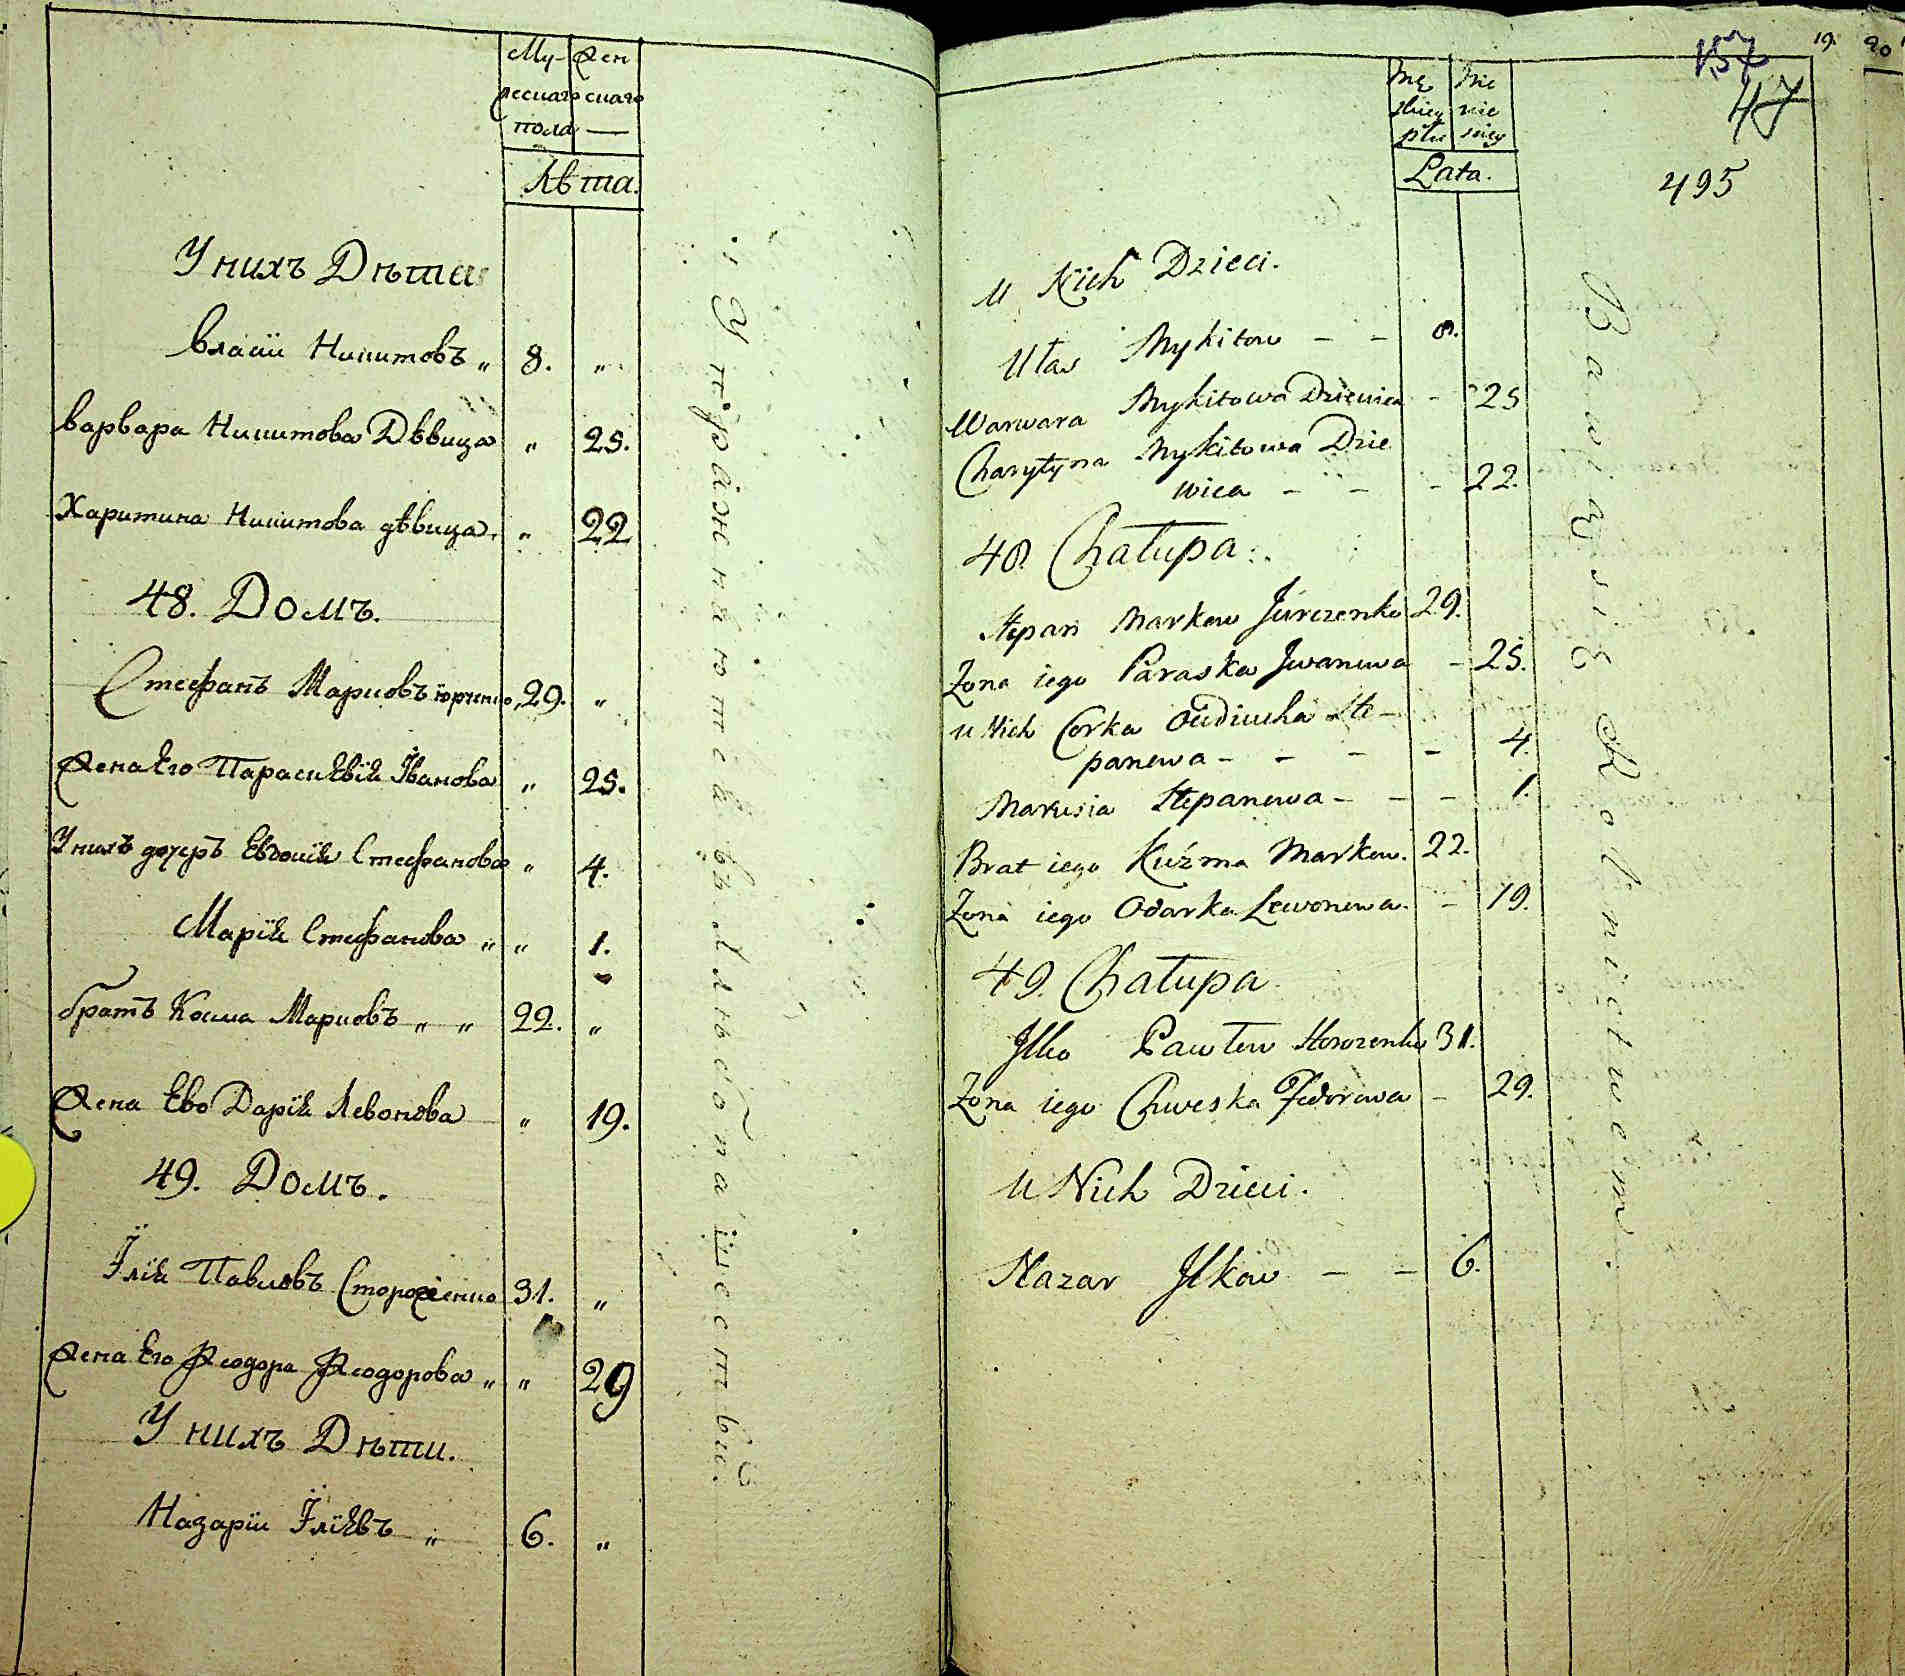 Му- Жен
жескаго скаго
пола —
Лѣта.
У нихъ Дѣти
Власій Никитовъ „ 8. „
Варвара Никитова Дѣвица „ 25.
Харитина Никитова дѣвица. „ 22
48. Домъ.
Стефанъ Марковъ Юрченко „ 29. „
Жена Его Параскевія Іванова „ 25.
У нихъ дочерь Евдокія Стефанова „ 4.
Марія Стефанова „ „ 1.
братъ Косма Марковъ „ „ 22. „
Жена Ево Дарія Левонова „ 19.
49. Домъ.
Ілія Павловъ Стороженко 31. „
Жена Его Феодора Феодорова „ „ 29
У нихъ Дѣти.
Назарій Іліевъ „ 6. „
Упражняются въ Хлѣбопашествѣ.
19. 20
157
47
495
Mę Że
skiey nie
płci skiey
Lata.
U Nich Dzieci.
Ułas Mykitow – – 8.
Warwara Mykitowa Dziewica – 25
Charytyna Mykitowa Dzie
wica – – – 22.
48. Chałupa.
Stepan Markow Jurczenko 29.
Zona iego Paraska Jwanowa – 25.
u Nich Corka Oudiucha Ste–
panowa – – – – 4.
Marusia Stepanowa – – – 1.
Brat iego Kuźma Markow. 22.
Zona iego Odarka Lewonowa. – 19.
49. Chałupa
Jlko Pawłow Storozenko 31.
Zona iego Chweska Fedorowa – 29.
U Nich Dzieci.
Nazar Jlkow – – 6.
Bawią się Rolnictwem.